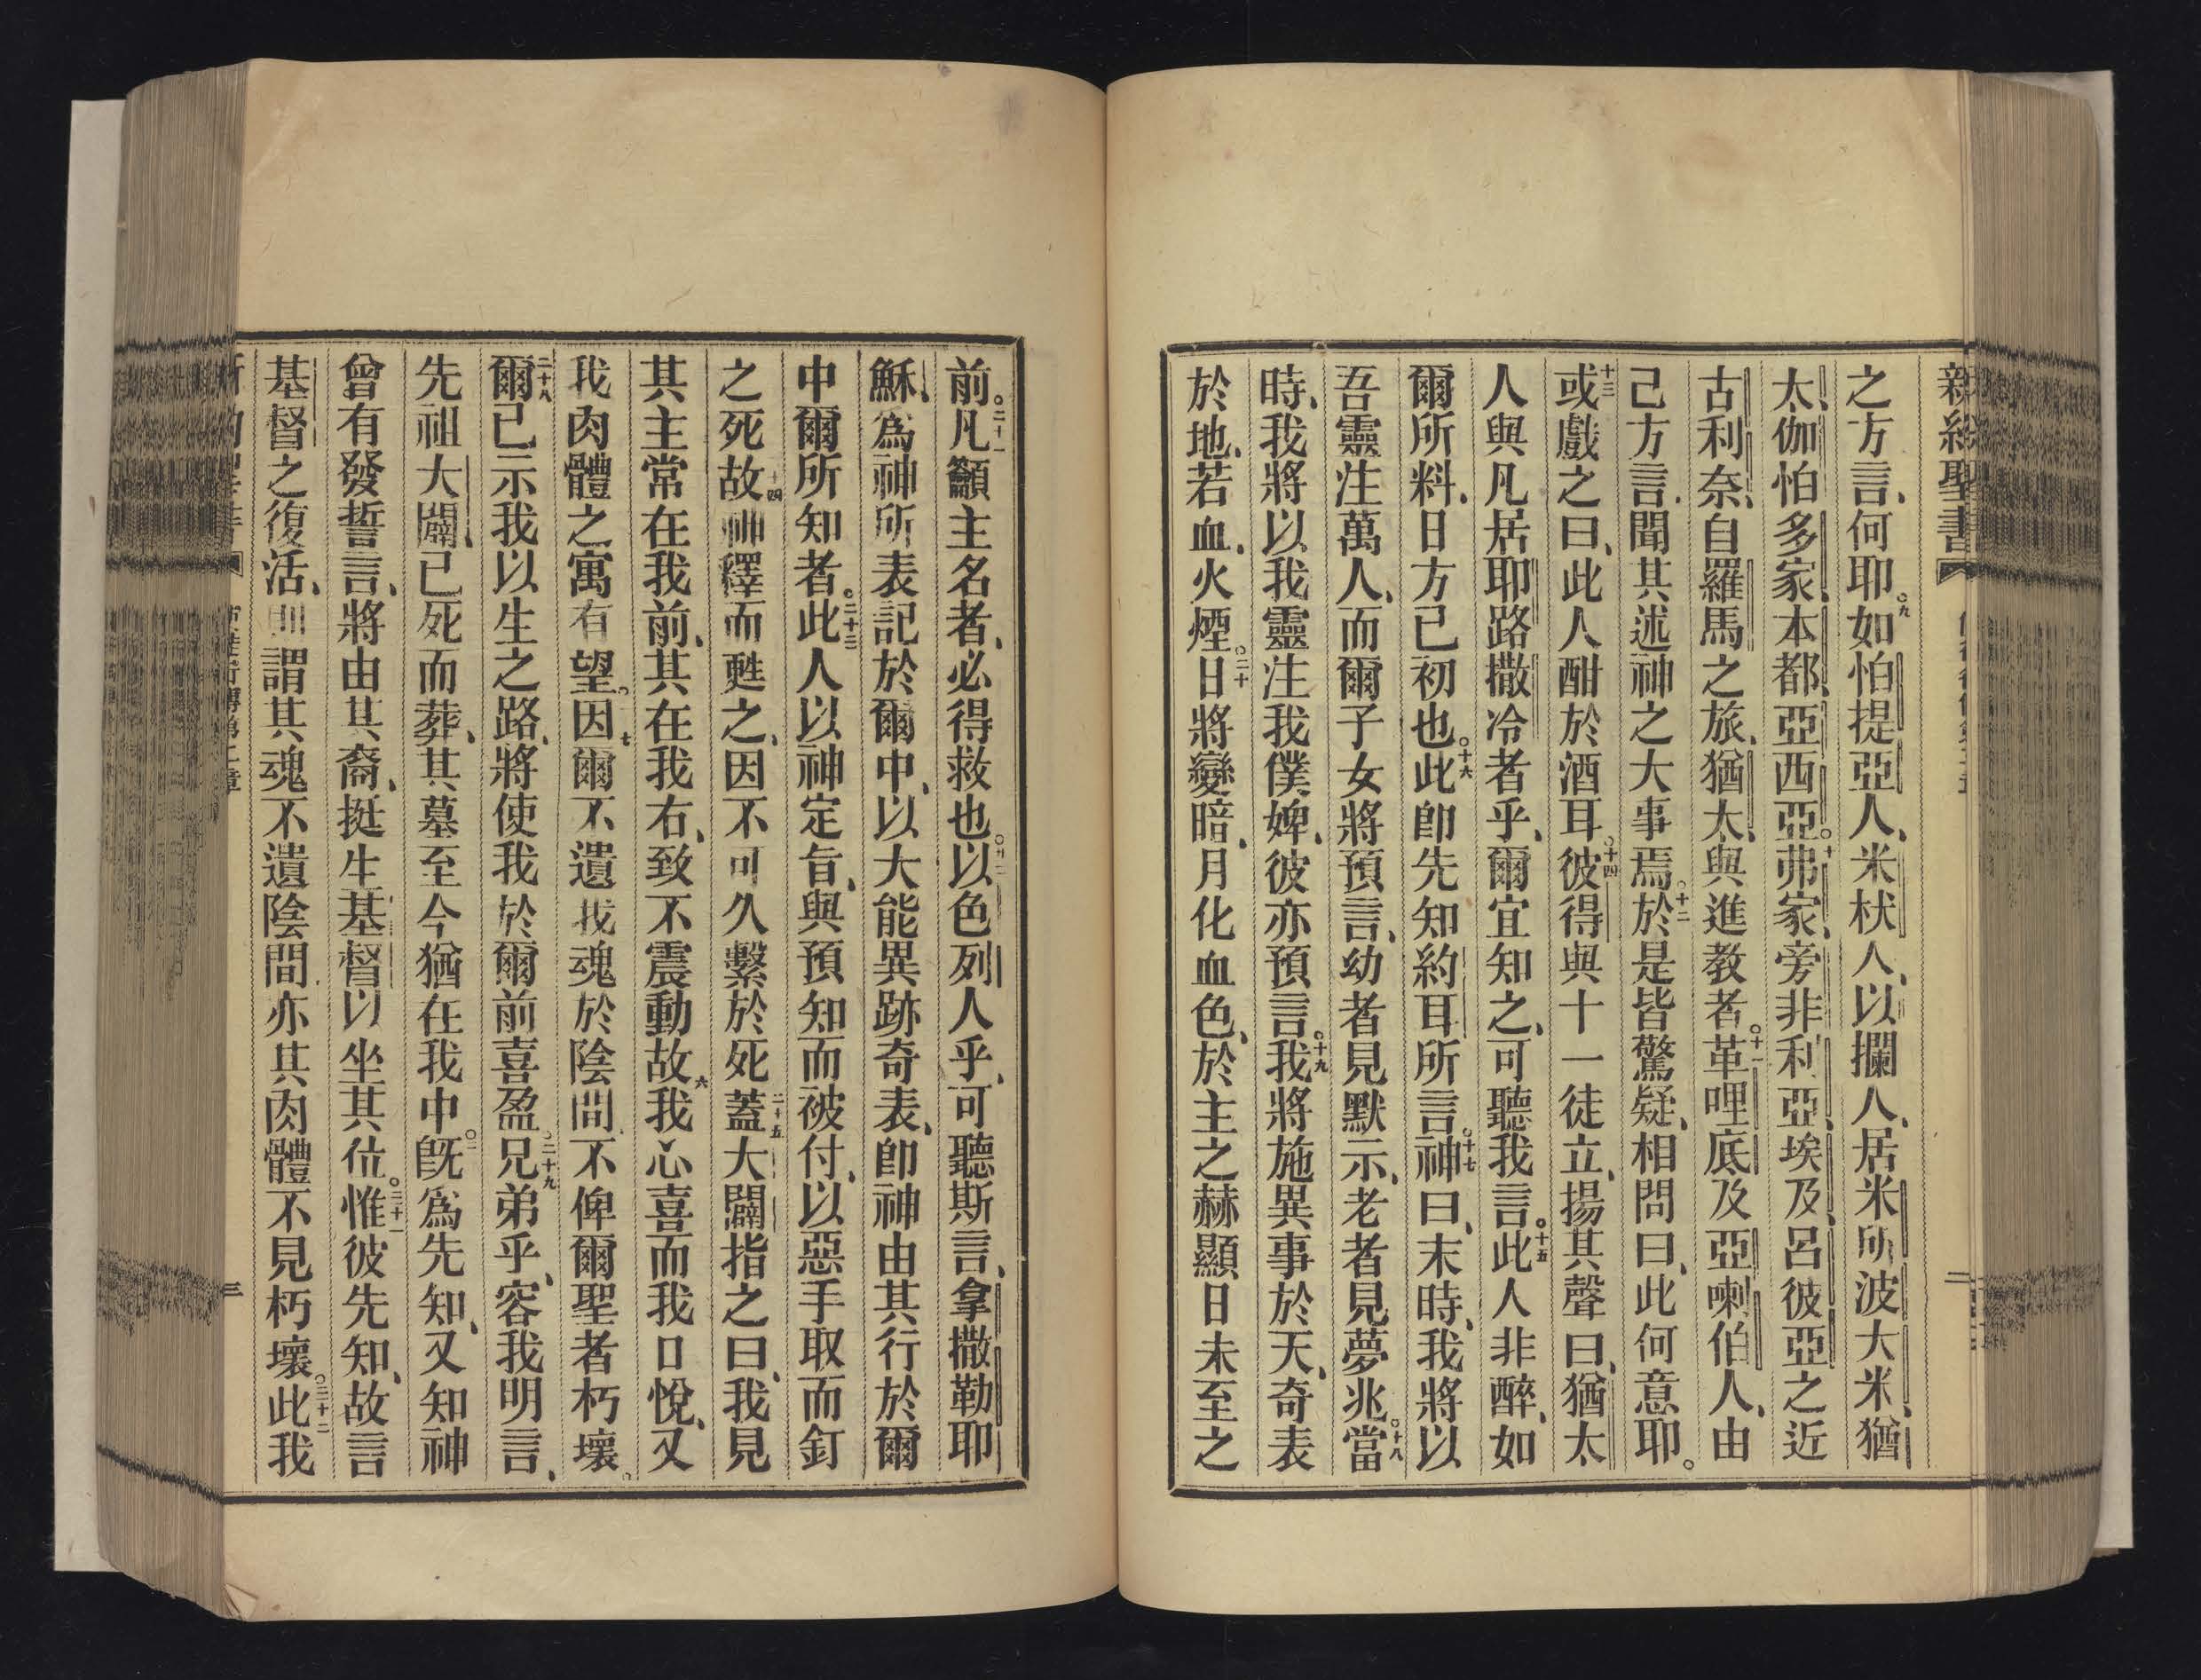 新約聖書
之方言、何耶。九如怕提亞人、米杕人、以攔人、居米所波大米、猶
太、伽怕多家、本都、亞西亞。十弗家、旁非利亞、埃及、呂彼亞之近
古利奈、自羅馬之旅、猶太、與進教者。十一革哩底及亞喇伯人、由
己方言、聞其述神之大事焉。十二於是皆驚疑、相問曰、此何意耶。
十三或戲之曰、此人酣於酒耳。十四彼得與十一徒立、揚其聲曰、猶太
人與凡居耶路撒冷者乎、爾宜知之、可聽我言。十五此人非醉、如
爾所料、日方已初也。十六此卽先知約耳所言。十七神曰、末時、我將以
吾靈注萬人、而爾子女將預言、幼者見默示、老者見夢兆。十八當
時、我將以我靈注我僕婢、彼亦預言。十九我將施異事於天、奇表
於地、若血、火煙。二十日將變暗、月化血色、於主之赫顯日未至之
二
前。二十一凡籲主名者、必得救也。廿二以色列人乎、可聽斯言、拿撒勒耶
穌、爲神所表記於爾中、以大能異跡奇表、卽神由其行於爾
中爾所知者。二十三此人以神定旨、與預知而被付、以惡手取而釘
之死故十四神釋而甦之、因不可久繫於死二十五蓋大闢指之曰、我見
其主常在我前、其在我右、致不震動故六我心喜而我口悅、又
我肉體之寓有望。因七爾不遺我魂於陰間、不俾爾聖者朽壞。
二十八爾已示我以生之路、將使我於爾前喜盈。二十九兄弟乎、容我明言、
先祖大闢、已死而葬、其墓至今猶在我中。旣爲先知、又知神
曾有發誓言、將由其裔、挺生基督以坐其位。三十一惟彼先知、故言
基督之復活、則謂其魂不遺陰間、亦其肉體不見朽壞。三十二此我
三